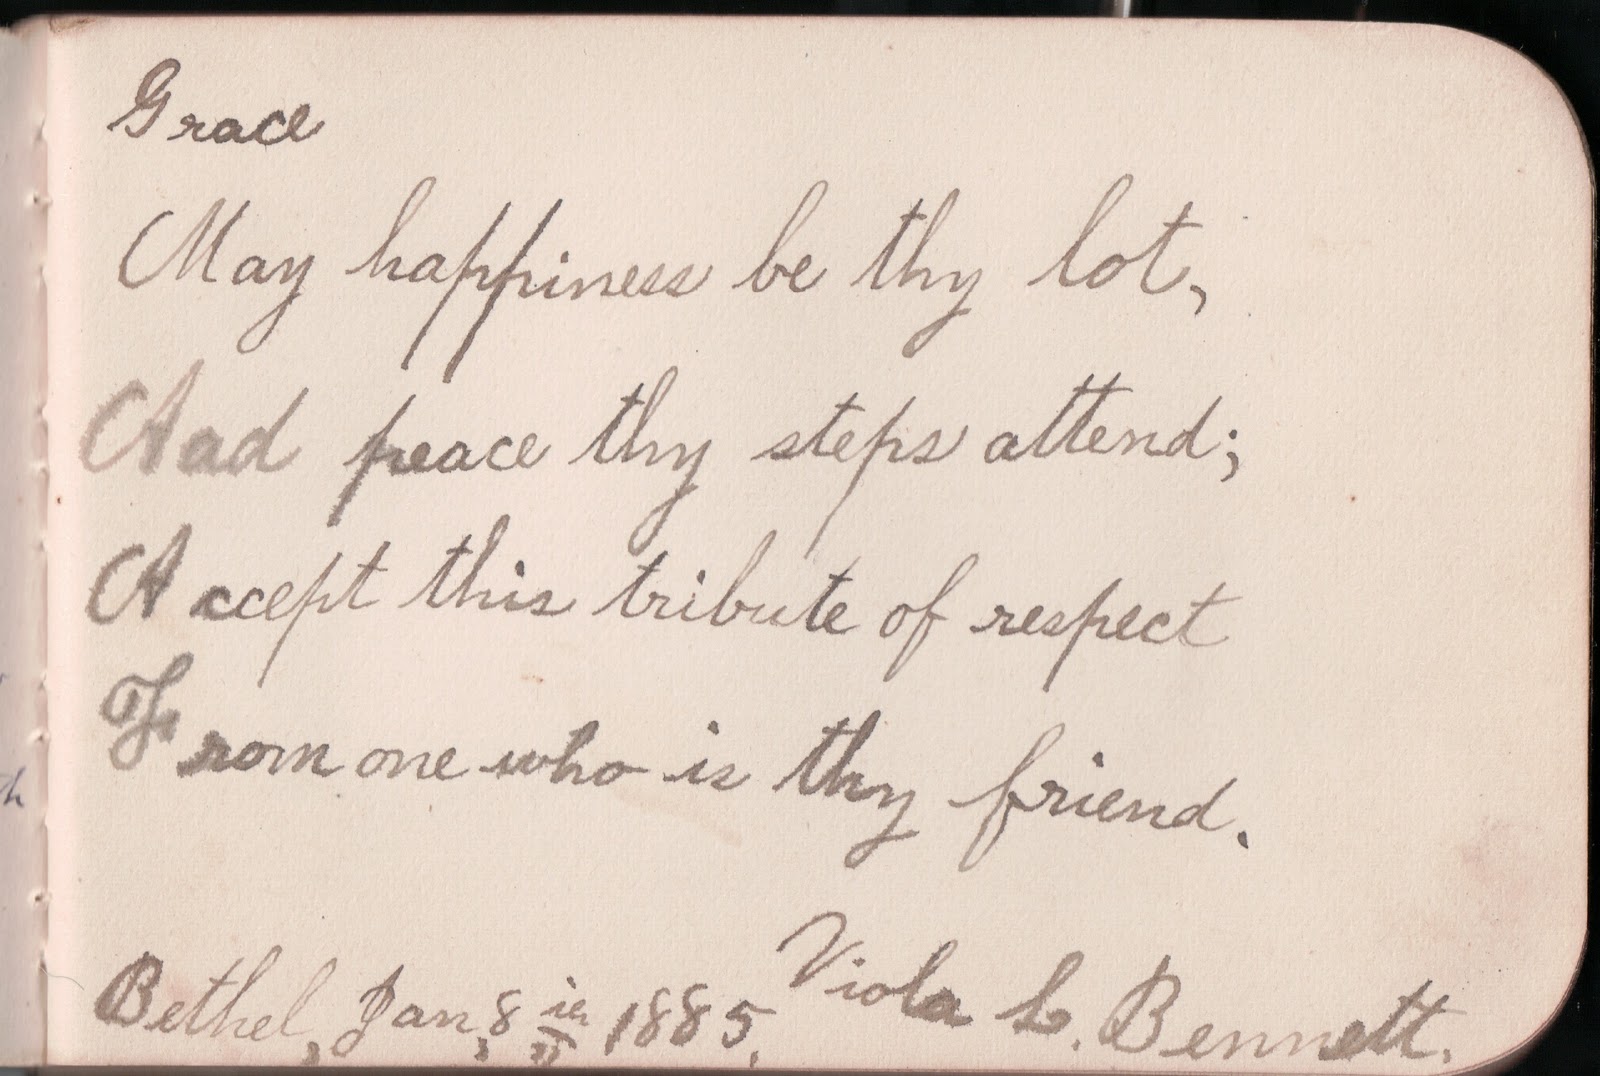 Grace
May happiness be thy lot,
And peace thy steps attend;
Accept this tribute of respect
From one who is thy friend.
Viola L. Bennett.
Bethel, Jan, 8 1885.